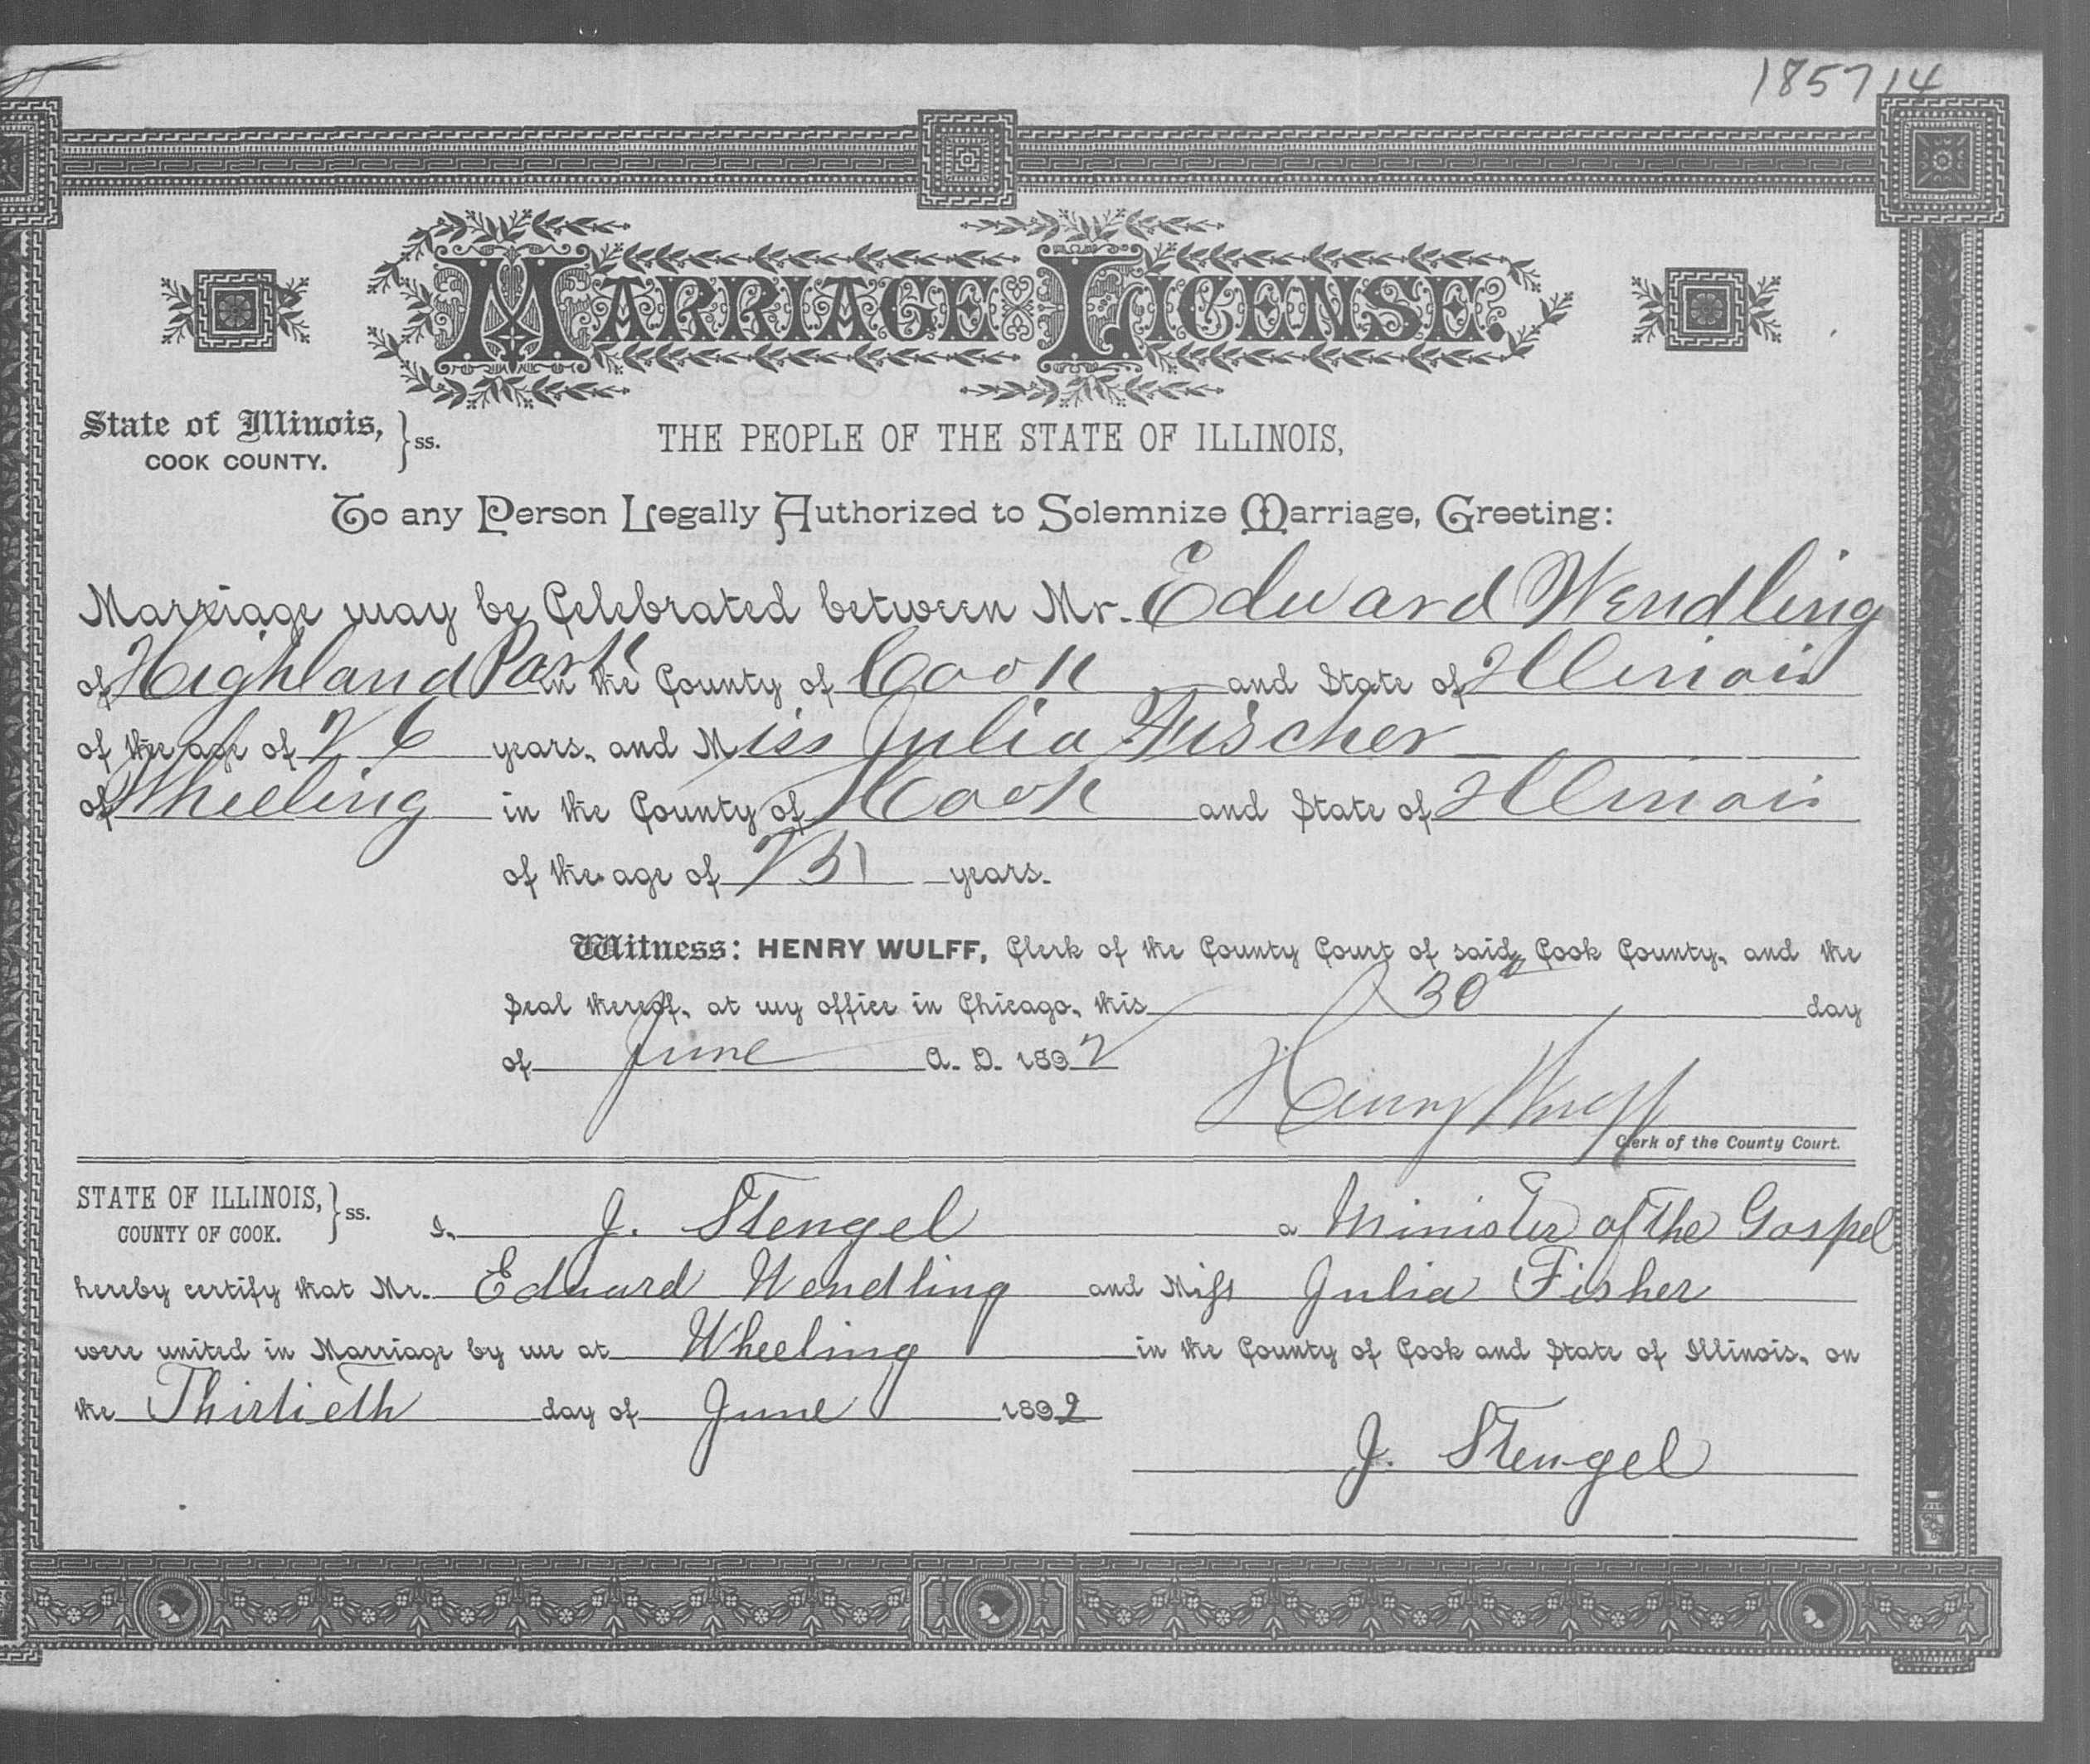 185714
MARRIAGE LICENSE.
State of Illinois, } ss.
COOK COUNTY.
THE PEOPLE OF THE STATE OF ILLINOIS,
To any Person Legally Authorized to Solemnize Marriage, Greeting:
Marriage may be Celebrated between Mr. Edward Wendling
of Highland Park in the County of Cook and State of Illinois
of the age of 26 years, and Miss Julia Fischer
of Wheeling in the County of Cook and State of Illinois
of the age of years.
Witness: HENRY WULFF, Clerk of the County Court of said Cook County, and the
Seal thereof, at my office in Chicago, this 30th day
of June A. D. 1892
Henry Wulff
Clerk of the County Court.
STATE OF ILLINOIS, } ss.
COUNTY OF COOK.
I, J. Stengel a Minister of the Gospel
hereby certify that Mr. Eduard Wendling and Miss Julia Fisher
were united in Marriage by me at Wheeling in the County of Cook and State of Illinois, on
the Thirtieth day of June 1892
J. Stengel